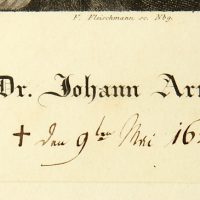 F. Fleischmann sc. Nbg.
Dr. Johann Ar
† den 9ten Mai 16